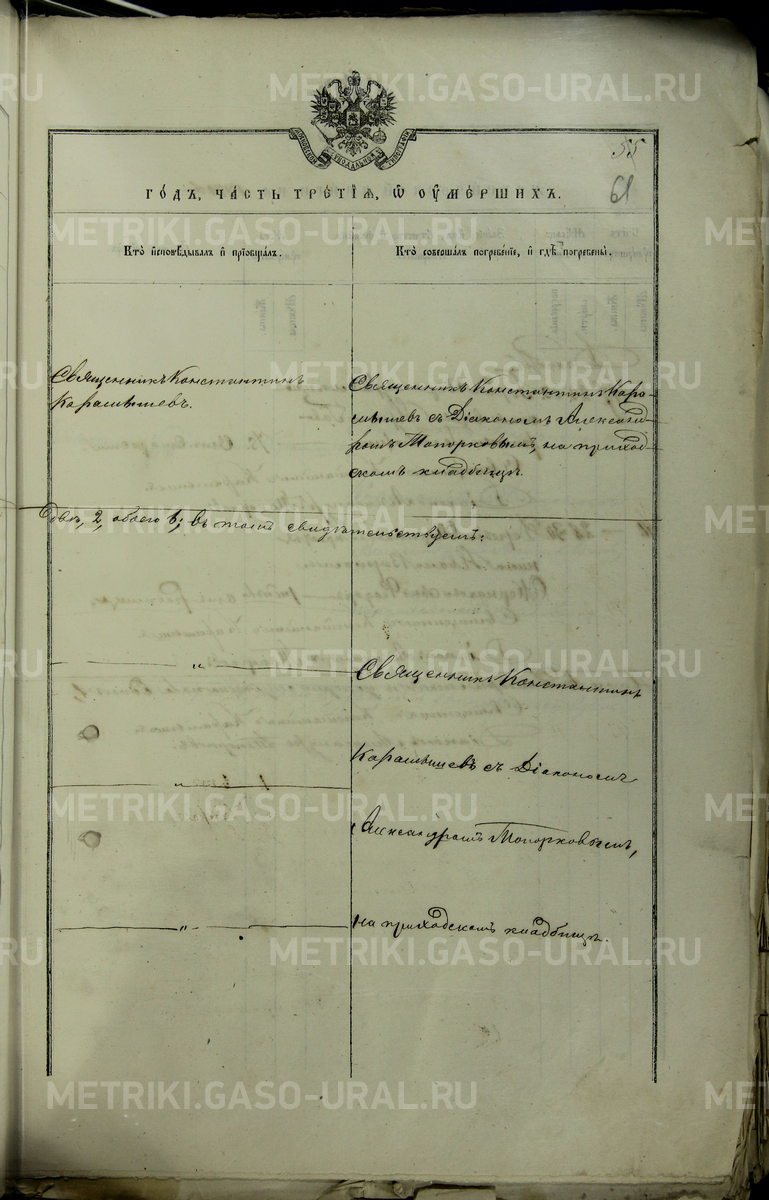 METRIKI.GASO-URAL.RU
55
61
ГО́ДЪ, ЧА́СТЬ ТРЕ́ТІѦ, Ѿ ОУ҆МЕ́РШИХЪ.
Кто̀ и҆сповѣ́дывалъ и҆ прїѡбща́лъ.
Кто̀ соверша́лъ погребе́нїе, и҆ гдѣ̀ погребены̀.
Священникъ Константинъ
Карамышевъ.
Священникъ Константинъ Кара-
мышевъ съ Діакономъ Александ-
ромъ Топорковымъ, на приход-
скомъ кладбищѣ.
2, обоего 6; въ томъ свидѣтельствуемъ:
Священникъ Константинъ
Карамышевъ съ Діакономъ
Александромъ Топорковымъ,
на приходскомъ кладбищѣ.